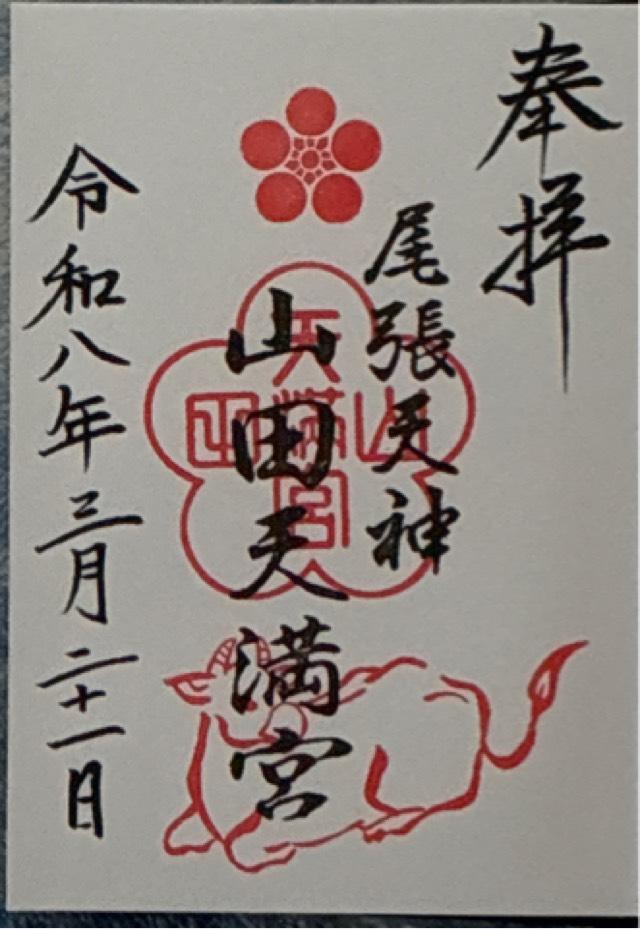 奉拝
尾張天神
山田天満宮
山田天満宮
令和八年三月二十一日